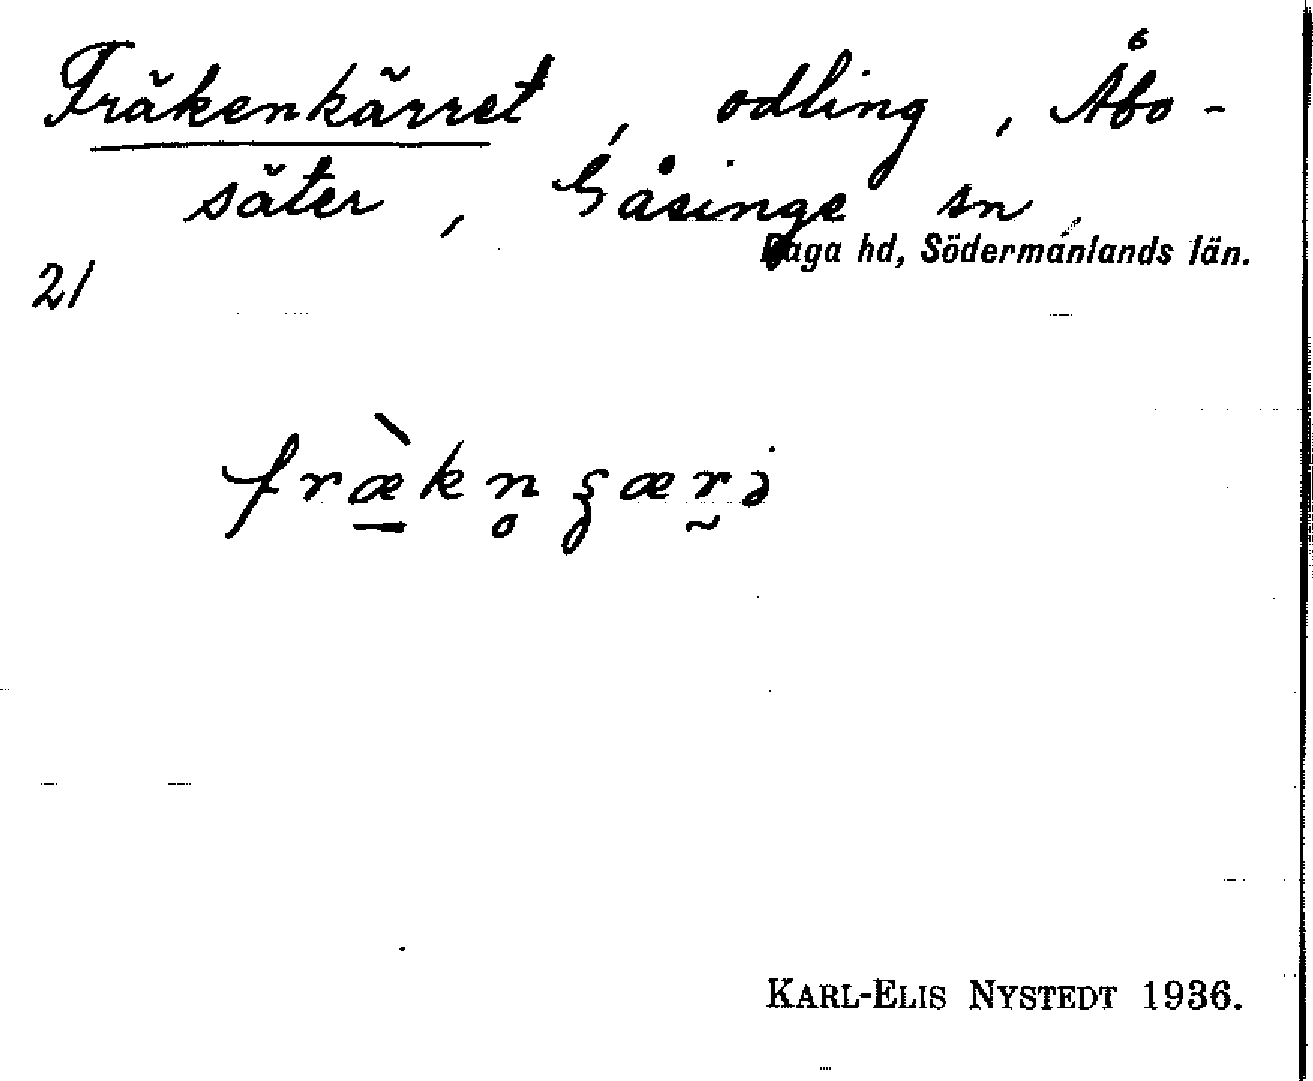 Fräkenkärret, odling, Åbo-
säter, Gåsinge sn,
Daga hd, Södermanlands län.
21
fræ̀kn̥ʒæri
KARL-ELIS NYSTEDT 1936.